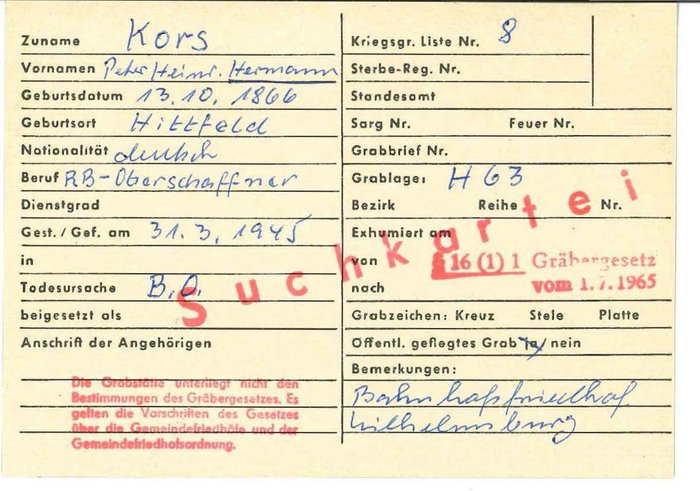 Zuname Kors
Vornamen Peter Heinr. Hermann
Geburtsdatum 13.10. 1866
Geburtsort Hittfeld
Nationalität deutsch
Beruf RB-Oberschaffner
Dienstgrad
Gest./Gef. am 31.3.1945
in
Todesursache B.O.
beigesetzt als
Anschrift der Angehörigen
Die Grabstätte unterliegt nicht den
Bestimmungen des Gräbergesetzes. Es
gelten die Vorschriften des Gesetzes
über die Gemeindefriedhöfe und der
Gemeindefriedhofsordnung.
Kriegsgr. Liste Nr. 8
Sterbe-Reg. Nr.
Standesamt
Sarg Nr. Feuer Nr.
Grabbrief Nr.
Grablage: H 63
Bezirk Reihe Nr.
Exhumiert am
von
nach
Suchkartei
§ 16 (1) 1 Gräbergesetz
vom 1.7.1965
Grabzeichen: Kreuz Stele Platte
Öffentl. gepflegtes Grab ja/nein
Bemerkungen:
Bahnhofsfriedhof
Wilhelmsburg